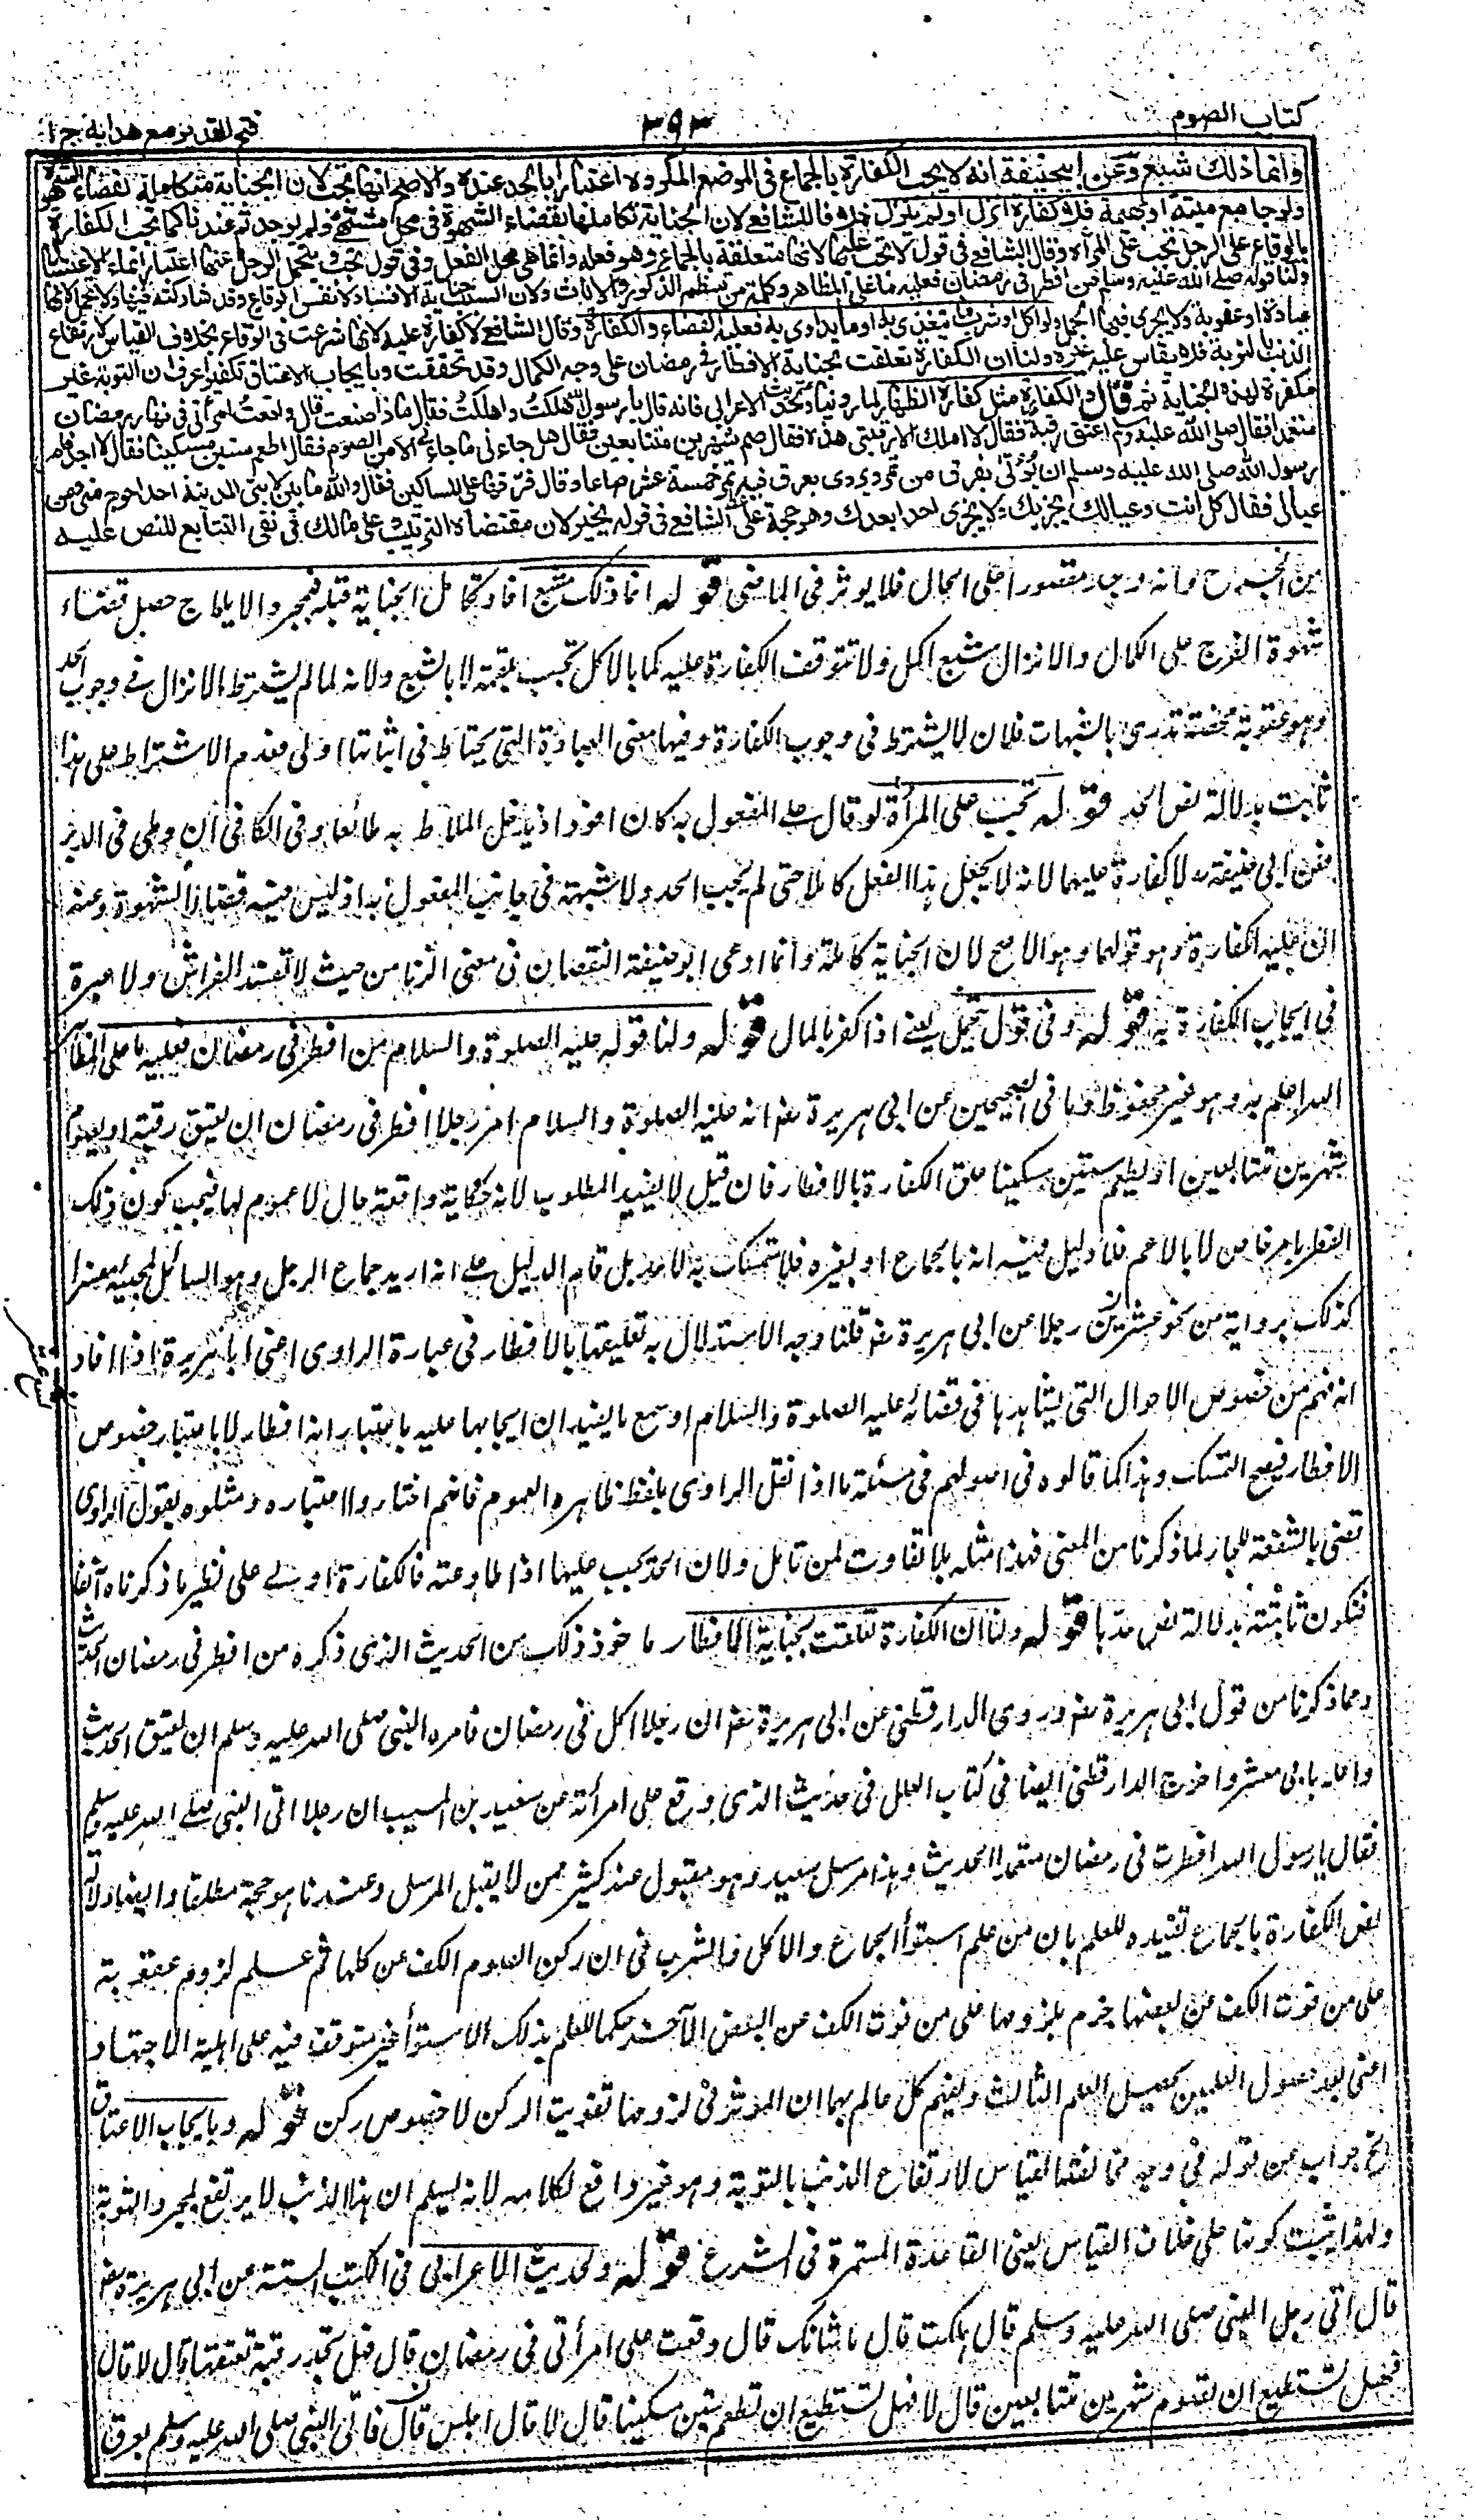 كتاب الصوم ٣٩٣ فتح القدير مع هداية ج ١
وانما ذلك شبع وعن ابيحنيفة انه لا يجب الكفارة بالجماع فى الموضع المكروه اعتبارا بالحد عنده والاصح انها تجب لان الجناية متكاملة لقضاء الشهوة
ولو جامع ميتة او بهيمة فلا كفارة انزل او لم ينزل خلافا للشافعى لان الجناية تكاملها بقضاء الشهوة فى محل مشتهى ولم يوجد ثم عندنا كما تجب الكفارة
بالوقاع على الرجل تجب على المرأة وقال الشافعى فى قول لا تجب عليها لانها متعلقة بالجماع وهو فعله وانما هى محل الفعل وفى قول تجب ويتحمل الرجل عنها اعتبارا بماء الاغتسال
ولنا قوله صلى الله عليه وسلم من افطر فى رمضان فعليه ما على المظاهر وكلمة من تنتظم الذكور والاناث ولان السبب جناية الافساد لا نفس الوقاع وقد شاركته فيها ولا يتحمل لانها
عبادة او عقوبة ولا يجرى فيها التحمل ولو اكل او شرب ما يتغذى به او ما يداوى به فعليه القضاء والكفارة وقال الشافعى لا كفارة عليه لانها شرعت فى الوقاع بخلاف القياس لارتفاع
الذنب بالتوبة فلا يقاس عليه غيره ولنا ان الكفارة تعلقت بجناية الافطار فى رمضان على وجه الكمال وقد تحققت وبايجاب الاعتاق تكفيرا عرف ان التوبة غير
مكفرة لهذه الجناية ثم قال والكفارة مثل كفارة الظهار لما روينا ولحديث الاعرابى فانه قال يا رسول الله هلكت واهلكت فقال ماذا صنعت قال واقعت امرأتى فى نهار رمضان
متعمدا فقال صلى الله عليه وسلم اعتق رقبة فقال لا املك الا رقبتى هذه فقال صم شهرين متتابعين فقال هل جاءنى ما جاءنى الا من الصوم فقال اطعم ستين مسكينا فقال لا اجد فامر
رسول الله صلى الله عليه وسلم ان يؤتى بفرق من تمر ويروى بعرق فيه تمر خمسة عشر صاعا وقال فرقها على المساكين فقال والله ما بين لابتى المدينة احد احوج منى ومن
عيالى فقال كل انت وعيالك يجزيك ولا يجزى احدا بعدك وهو حجة على الشافعى فى قوله يخير لان مقتضاه الترتيب وعلى مالك فى نفى التتابع للنص عليه
مقصورا على الحال فلا يوثر فى الماضى قوله انما ذلك شبع افاد تكامل الجناية قبله فبمجرد الايلاج حصل قضاء
شهوة الفرج على الكمال والانزال شبع اكمل ولا تتوقف الكفارة عليه كما بالاكل تجب بلقمة لا بالشبع ولانه لما لم يشترط الانزال فى وجوب الحد
وهو عقوبة محضة تدرى بالشبهات فلان لا يشترط فى وجوب الكفارة وفيها معنى العبادة التى يحتاط فى اثباتها اولى فعدم الاشتراط على هذا
ثابت بدلالة نص الحد قوله تجب على المرأة لو قال على المفعول به كان افود اذ يدخل الملاط به طائعا وفى الكافى ان وطى فى الدبر
فعن ابى حنيفة لا كفارة عليهما لانه لا يجعل هذا الفعل كاملا حتى لم يجب الحد ولا شبهة فى جانب المفعول به اذ ليس فيه قضاء الشهوة وعنه
ان عليه الكفارة وهو قولهما وهو الاصح لان الجناية كاملة وانما ادعى ابو حنيفة النقصان فى معنى الزنا من حيث لا تفسد الفراش ولا عبرة
فى ايجاب الكفارة به قوله وفى قول تتحمل يعنى اذا كفر بالمال قوله ولنا قوله عليه الصلوة والسلام من افطر فى رمضان فعليه ما على المظاهر
الله اعلم به وهو غير محفوظ وما فى الصحيحين عن ابى هريرة رض انه عليه الصلوة والسلام امر رجلا افطر فى رمضان ان يعتق رقبة او يصوم
شهرين متتابعين او يطعم ستين مسكينا علق الكفارة بالافطار فان قيل لا يفيد المطلوب لانه حكاية واقعة حال لا عموم لها فيجب كون ذلك
الفطر بامر خاص لا بالاعم فلا دليل فيه انه بالجماع او بغيره فلا متمسك به لاحد بل قام الدليل على انه اريد جماع الرجل وهو السائل لمجيئه مفسرا
كذلك برواية من نحو عشرين رجلا عن ابى هريرة رض قلنا وجه الاستدلال به تعليقها بالافطار فى عبارة الراوى اعنى ابا هريرة اذا افاد
انه فهم من خصوص الاحوال التى يشاهدها فى قضائه عليه الصلوة والسلام او سمع ما يفيد ان ايجابها عليه باعتبار انه افطار لا باعتبار خصوص
الافطار فيصح التمسك وهذا كما قالوه فى اصولهم فى مسئلة ما اذا نقل الراوى بلفظ ظاهره العموم فانهم اختاروا اعتباره ومثلوه بقول الراوى
قضى بالشفعة للجار لما ذكرنا من المعنى فهذا مثله بلا تفاوت لمن تامل ولان الحد يجب عليها اذا طاوعته فالكفارة اولى على نظير ما ذكرناه آنفا
فتكون ثابتة بدلالة نص حدها قوله ولنا ان الكفارة تعلقت بجناية الافطار ماخوذ ذلك من الحديث الذى ذكره من افطر فى رمضان الحديث
ومما ذكرنا من قول ابى هريرة رض وروى الدارقطنى عن ابى هريرة رض ان رجلا اكل فى رمضان فامره النبى صلى الله عليه وسلم ان يعتق الحديث
واعله بابى معشر واخرج الدارقطنى ايضا فى كتاب العلل فى حديث الذى وقع على امرأته عن سعيد بن المسيب ان رجلا اتى النبى صلى الله عليه وسلم
فقال يا رسول الله افطرت فى رمضان متعمدا الحديث وهذا مرسل سعيد وهو مقبول عند كثير ممن لا يقبل المرسل وعندنا هو حجة مطلقا وايضا دلالة
نص الكفارة بالجماع تفيده للعلم بان من علم استوأ الجماع والاكل والشرب فى ان ركن الصوم الكف عن كلها ثم علم لزوم عقوبة
على من فوت الكف عن بعضها جزم بلزومها على من فوت الكف عن البعض الآخر حكما للعلم بذلك الاستوأ غير متوقف فيه على اهلية الاجتهاد
اعنى بعد حصول العلمين يحصل العلم الثالث ويفهم كل عالم بهما ان الموثر فى لزومها تفويت الركن لا خصوص ركن قوله وبايجاب الاعتاق
الخ جواب عن قوله فى وجه مخالفة القياس لارتفاع الذنب بالتوبة وهو غير دافع لكلامه لانه يسلم ان هذا الذنب لا يرتفع بمجرد التوبة
ولهذا يثبت كونها على خلاف القياس يعنى القاعدة المستمرة فى الشرع قوله ولحديث الاعرابى فى الكتب الستة عن ابى هريرة رض
قال اتى رجل النبى صلى الله عليه وسلم قال هلكت قال ما شانك قال وقعت على امرأتى فى رمضان قال فهل تجد رقبة تعتقها قال لا قال
فهل تستطيع ان تصوم شهرين متتابعين قال لا فهل تستطيع ان تطعم ستين مسكينا قال لا قال اجلس قال فاتى النبى صلى الله عليه وسلم بعرق